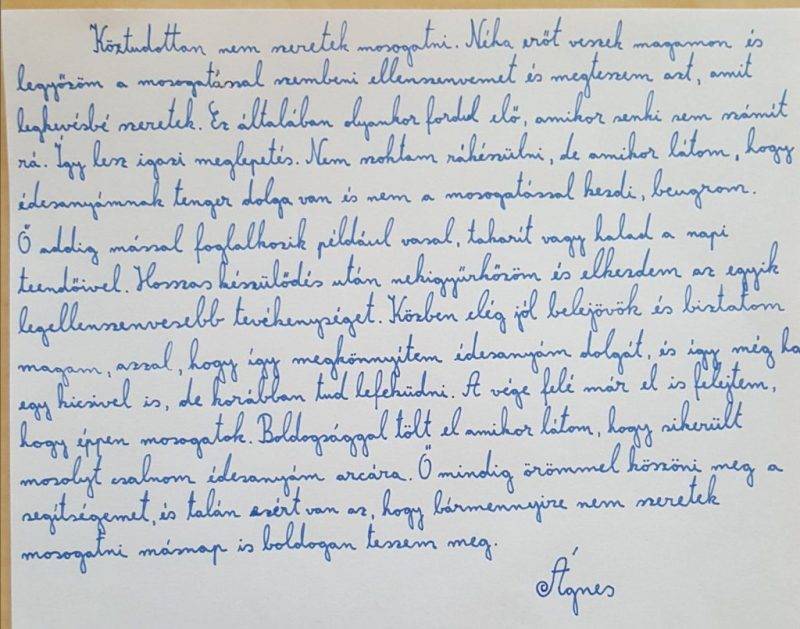 Köztudottan nem szeretek mosogatni. Néha erőt veszek magamon és
legyőzöm a mosogatással szembeni ellenszenvemet és megteszem azt, amit
legkevésbé szeretek. Ez általában olyankor fordul elő, amikor senki sem számít
rá. Így lesz igazi meglepetés. Nem szoktam ráhészülni, de amikor látom, hogy
édesanyámnak tenger dolga van és nem a mosogatással kezdi, beugrom.
Ő addig mással foglalkozik például vasal, takarít vagy halad a napi
teendőivel. Hosszas készülődés után nekigyűrkőzöm és elkezdem az egyik
legellenszenvesebb tevékenységet. Közben elég jól belejövök és biztatom
magam, azzal, hogy így megkönnyítem édesanyám dolgát, és így még ha
egy kicsivel is, de korábban tud lefeküdni. A vége felé már el is felejtem,
hogy éppen mosogatok. Boldogsággal tölt el amikor látom, hogy sikerült
mosolyt csalnom édesanyám arcára. Ő mindig örömmel köszöni meg a
segítségemet, és talán ezért van az, hogy bármennyire nem szeretek
mosogatni másnap is boldogan teszem meg.
Ágnes